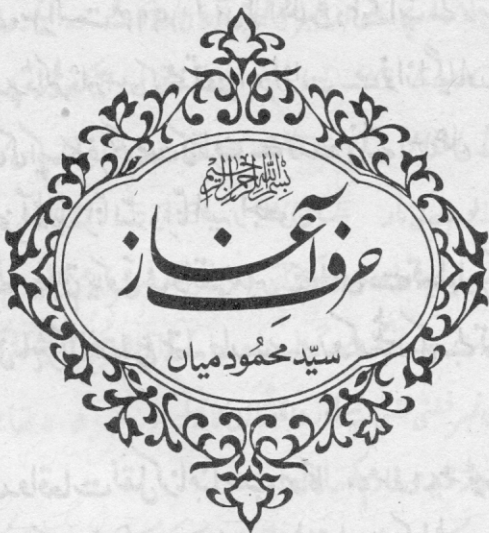 بسم اللہ الرحمن الرحیم
حرف آغاز
سیّد محمُود میاں